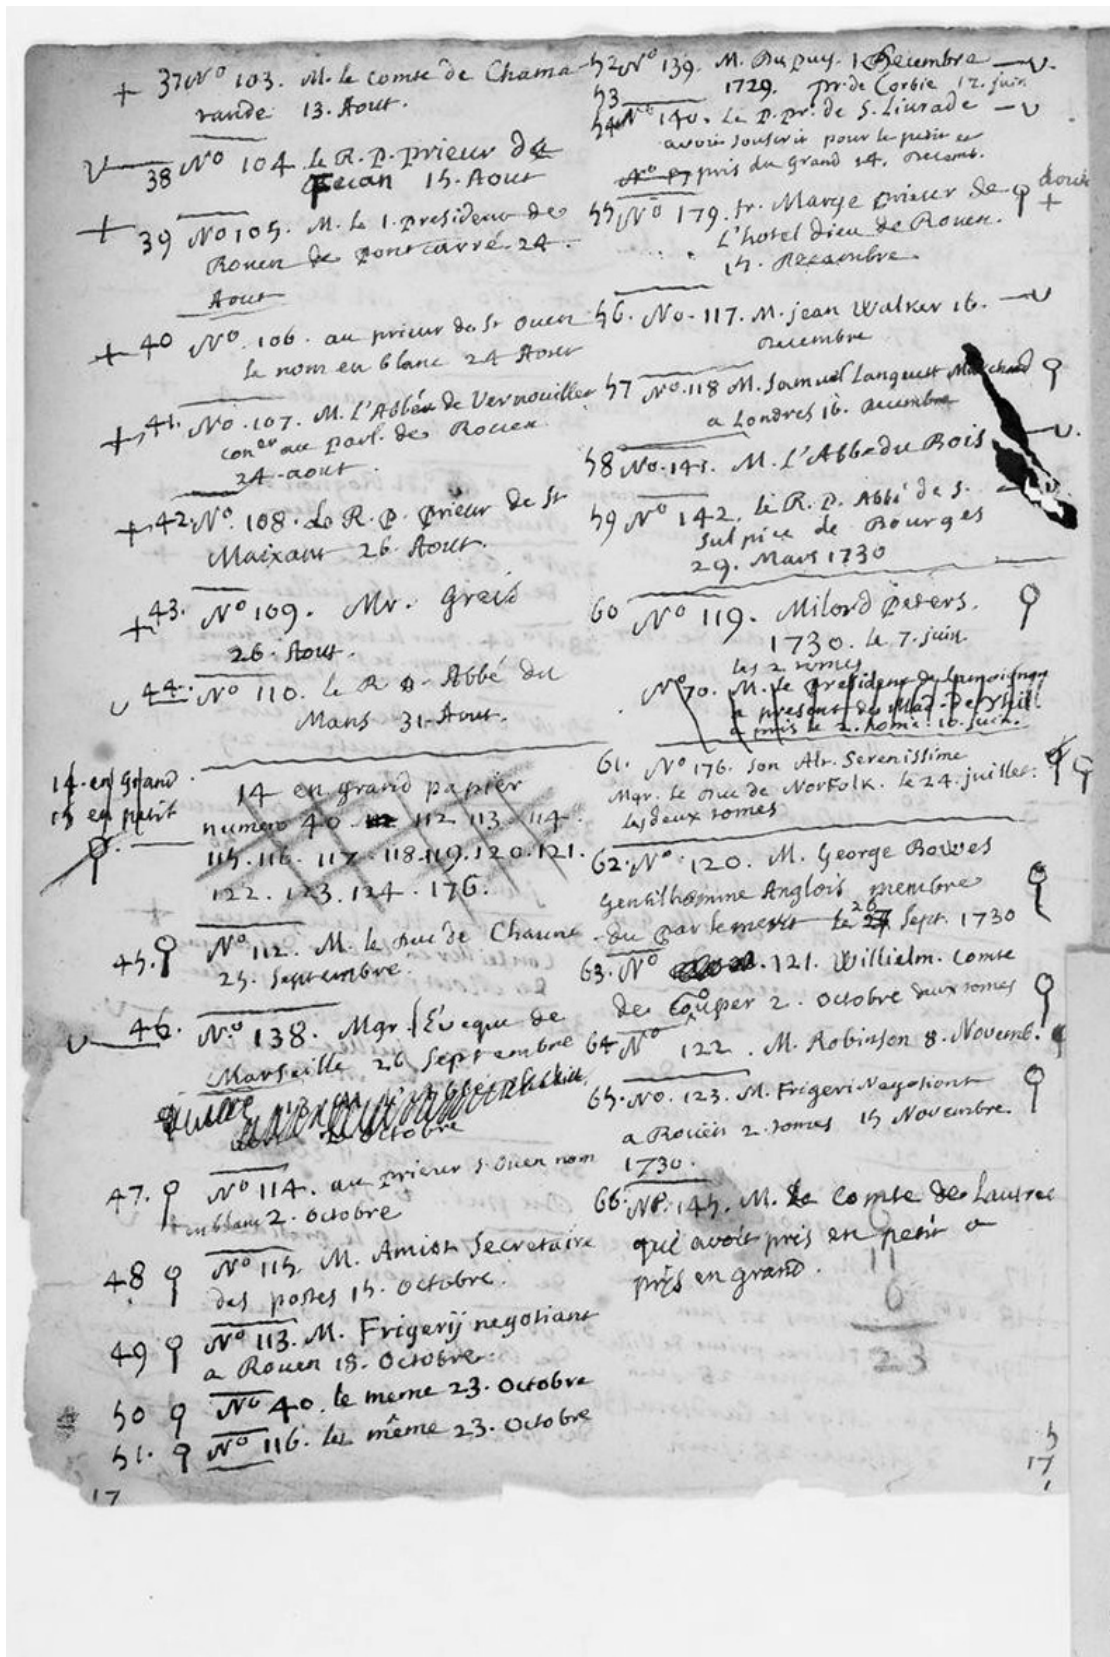 + 37 No 103. M. le comte de Chama
rande 13. Aout.
V 38 No 104 le R. P. prieur de
Fecan 15. Aout
+ 39 No 105. M. le 1. president de
Rouen de pontcarré. 24.
Aout
+ 40 No. 106. au prieur de St Ouen
le nom en blanc 24 Aout
+ 41. No. 107. M. L'Abbé de Vernouillet
coner au parl. de Rouen
24. aout.
+ 42. No. 108. Le R. P. prieur de St
Maixant 26. Aout.
+ 43. No 109. Mr. Greis
26. Aout.
V 44. No 110. le R Abbé du
Mans 31. Aout.
14. en grand
15 en petit
14 en grand papier
numero 40. 112 113. 114.
115. 116. 117. 118. 119. 120. 121.
122. 123. 124. 176.
45. No 112. M. le Duc de Chaune
25. Septembre.
V 46. No. 138. Mgr. l'Eveque de
Marseille 26 Septembre
2 octobre
47. No 114. au prieur S. Ouen nom
en blanc 2. octobre
48 No 115. M. Amiot Secretaire
des postes 15. octobre.
49 No 113. M. Frigerij negotiant
a Rouen 18. Octobre.
50 No 40. le meme 23. octobre
51. No 116. le même 23. octobre
17
52 No 139. M. Dupuy. 1 Decembre V.
53 1729. pr. de Corbie 12. juin
54 No 140. Le P. pr. de S. Liurade V
avoit souscrit pour le petit et
pris du grand 14. Decemb.
55 No 179. fr. Marye prieur de
L'hotel dieu de Rouen. +
15. Decembre
56. No. 117. M. jean Walker 16. V
Decembre
57 No. 118 M. Samuel Lanquet Marchand
a Londres 16. Decembre
58 No. 141. M. L'Abbe du Bois V.
59 No 142. le R. P. Abbé de S.
Sulpice de Bourges
29. Mars 1730
60 No 119. Milord Peters.
1730. le 7. juin.
les 2 tomes
No 70. M. le president de Lamoignon
a present
a pris le 2. tome. 10. juin.
61. No 176. Son Alt. Serenissime
Mgr. le Duc de Norfolk. le 24. juillet.
les deux tomes
62. No. 120. M. George Bowes
Gentilhomme Anglois membre
du parlement le 26 Sept. 1730
63. No 121. Willielm. Comte
de Couper 2. octobre deux tomes
64 No 122. M. Robinson 8. Novemb.
65. No. 123. M. Frigeri Negotiant
a Roüen 2. tomes 15 Novembre.
1730.
66. No. 145. M. Le Comte de Lautrec
qui avoit pris en petit a
pris en grand. 11
6
23
5
17